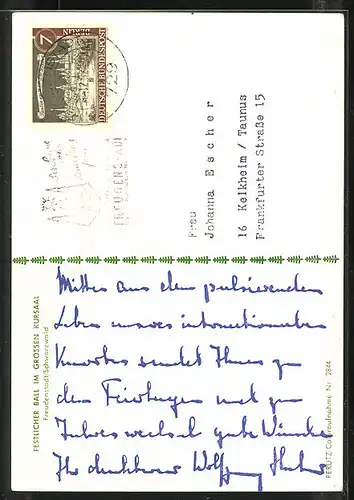 7
BERLIN
DEUTSCHE BUNDESPOST
729
FREUDENSTADT
Frau
Johanna Escher
16 Kelkheim / Taunus
Frankfurter Straße 15
FESTLICHER BALL IM GROSSEN KURSAAL
Freudenstadt/Schwarzwald
Mitten aus dem pulsierenden
Leben unseres internationalen
Kurortes sendet Ihnen zu
den Feiertagen und zum
Jahreswechsel gute Wünsche
Ihr dankbarer Wolfgang
PERUTZ-Coloraufnahme Nr. 2844